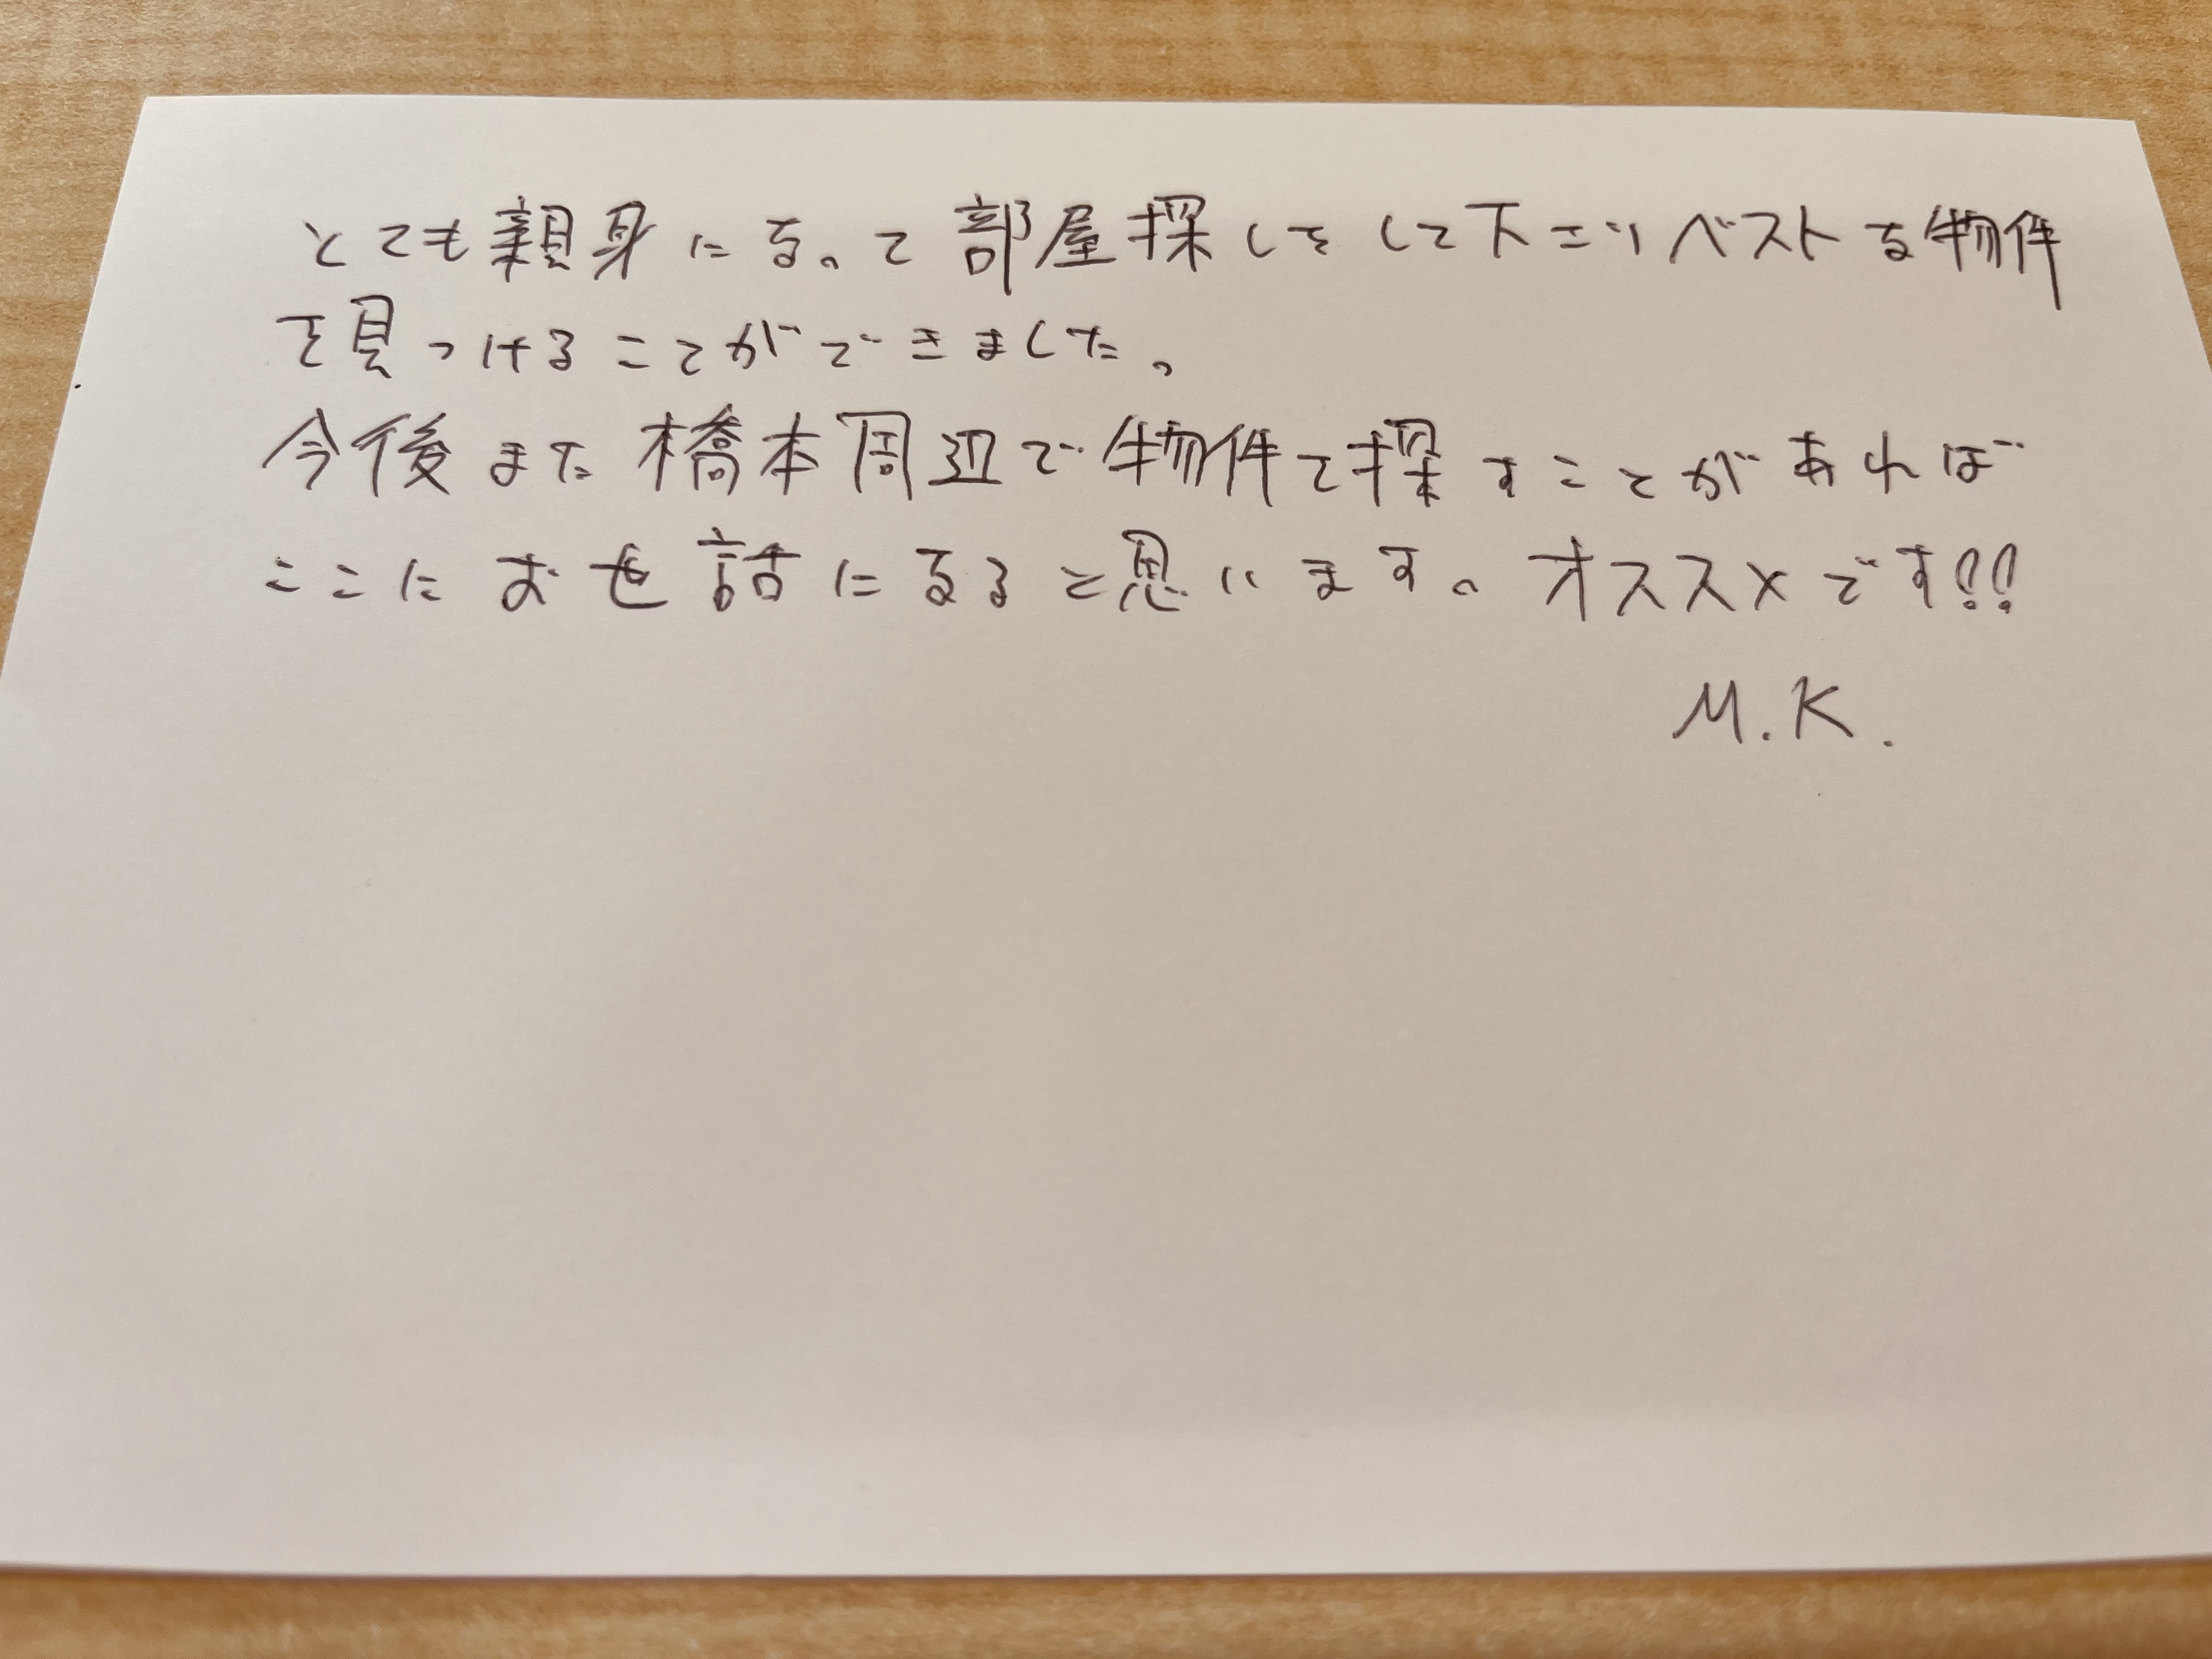 とても親身になって部屋探しをして下さりベストな物件
を見つけることができました。
今後また橋本周辺で物件を探すことがあれば
ここにお世話になると思います。オススメです!!
M.K.